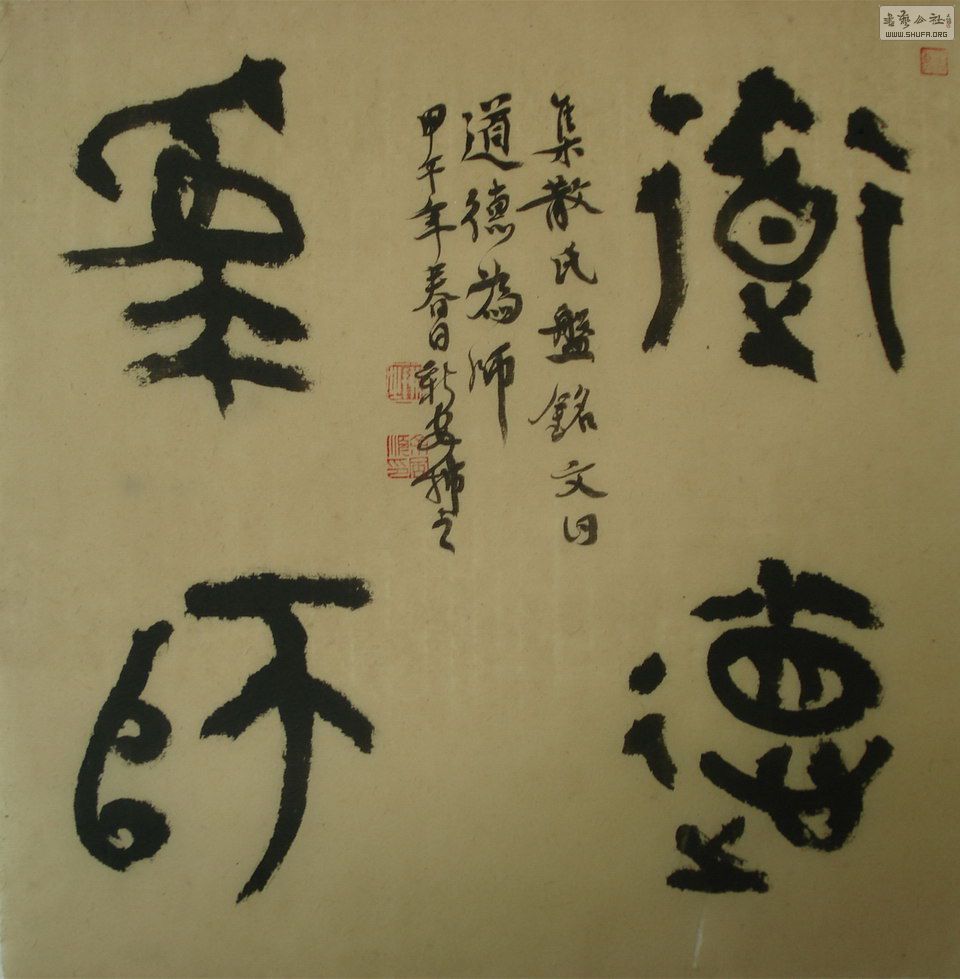 道德
為師
集散氏盤銘文曰
道德為師
甲午年春日新安
書藝公社
WWW.SHUFA.ORG